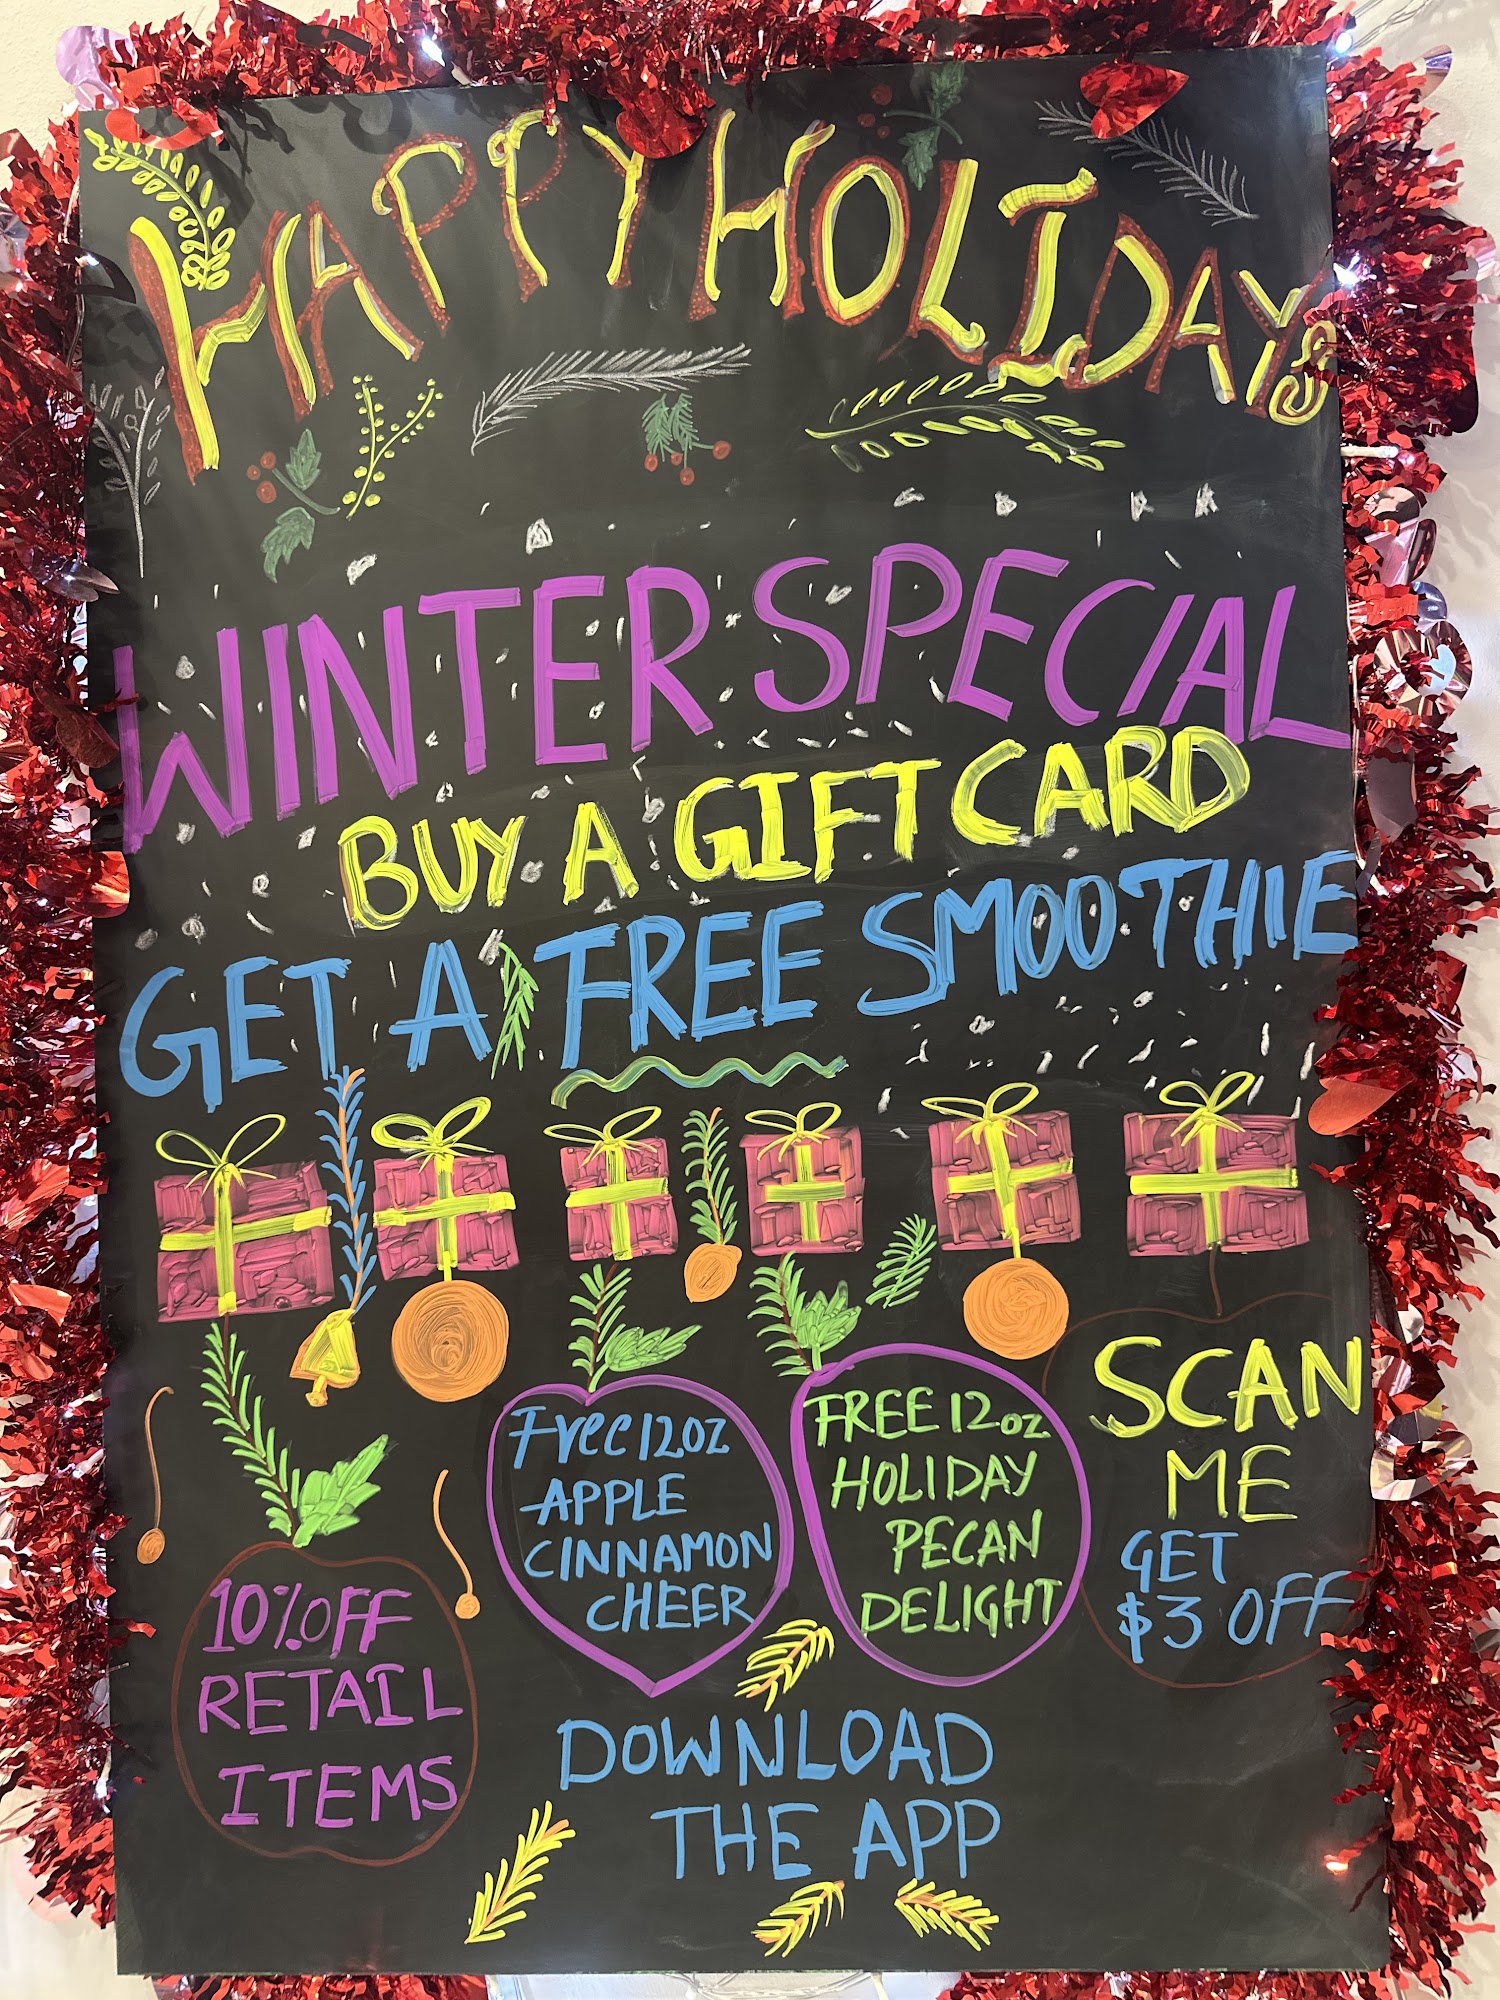 HAPPY HOLIDAYS
WINTER SPECIAL
BUY A GIFT CARD
GET A FREE SMOOTHIE
10% OFF
RETAIL
ITEMS
Free 12oz
APPLE
CINNAMON
CHEER
FREE 12oz
HOLIDAY
PECAN
DELIGHT
SCAN
ME
GET
$3 OFF
DOWNLOAD
THE APP